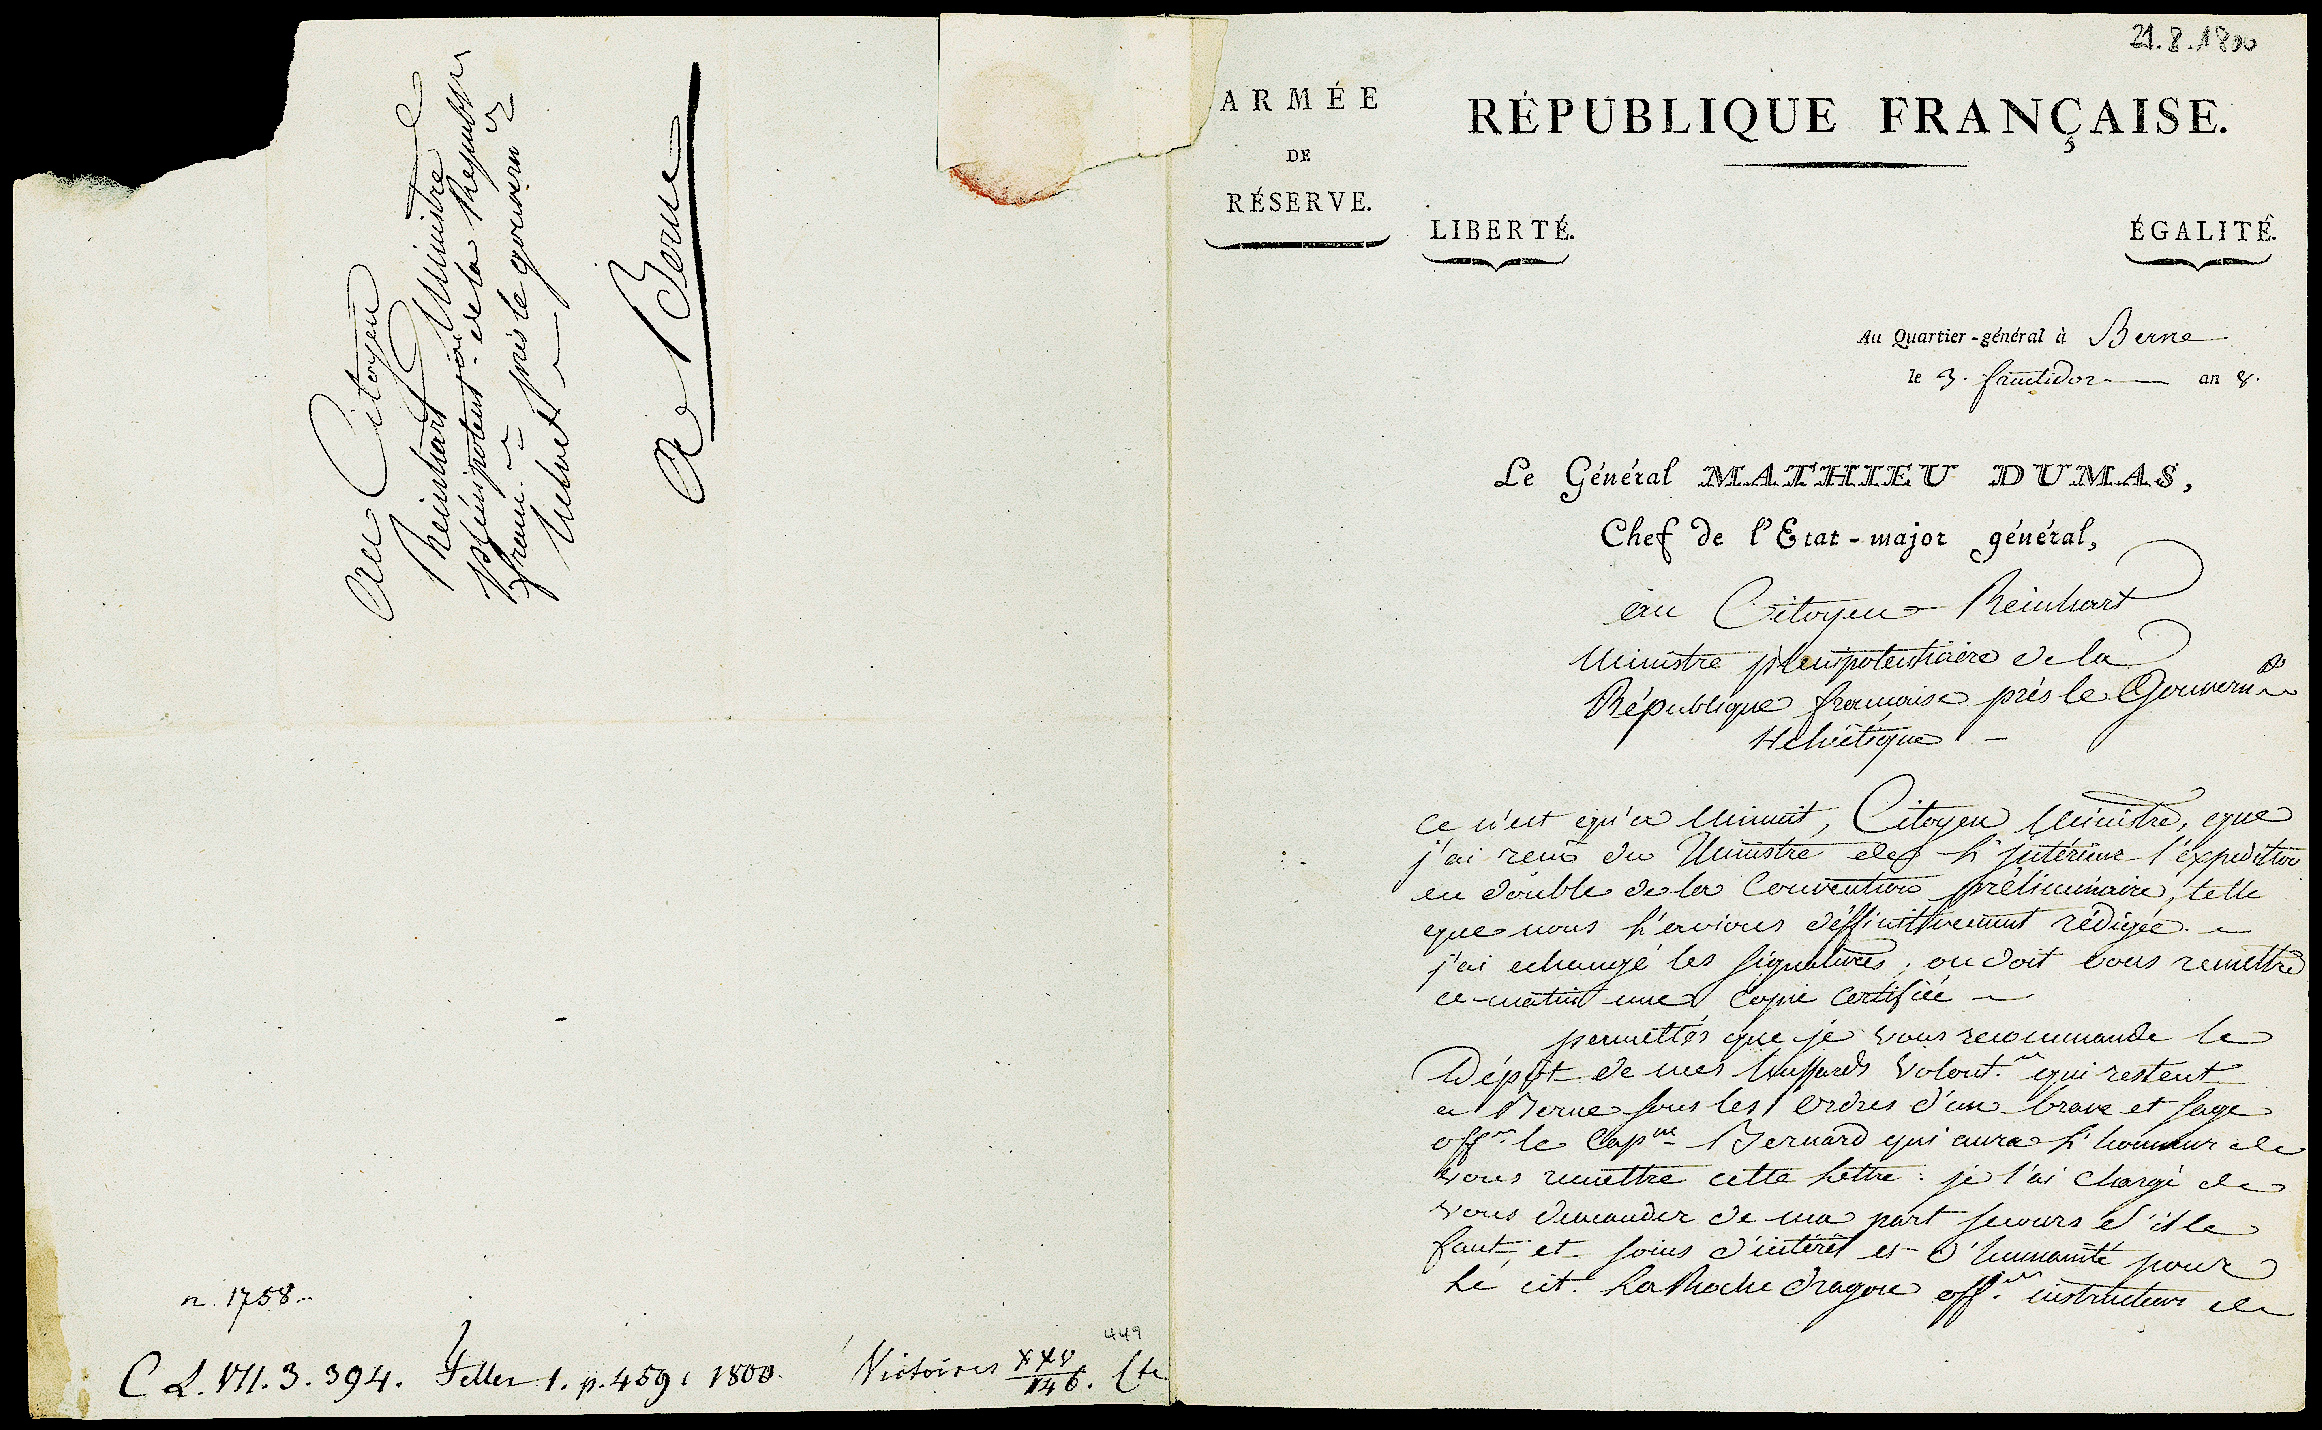 Au Citoyen
Reinhart Ministre
plénipotent.re de la Republq.
franc.se près le gouvern.t
helvet.
a Berne
n. 1758.
C L. VII. 3. 394. Feller 1. p. 459. 1800.
449
Victoires XXV
146.
21.8.1800
ARMÉE
DE
RÉSERVE.
RÉPUBLIQUE FRANÇAISE.
LIBERTÉ.
ÉGALITÉ.
Au Quartier-général à Berne
le 3. fructidor an 8.
Le Général MATHIEU DUMAS,
Chef de l'Etat-major général,
au Citoyen Reinhart
Ministre plenipotentiaire de la
République francaise près le Gouvern.t
Helvétique
Ce n'est qu'a Minuit, Citoyen Ministre, que
j'ai recu du Ministre de l'intérieur l'expedition
en double de la Convention préliminaire, telle
que nous l'avions déffinitivement rédigée.
j'ai echangé les signatures; on doit vous remettre
ce matin une Copie Certifiée
permettés que je vous recommande le
Dépôt de mes hussards volont.res qui restent
a Berne sous les Ordres d'un brave et sage
off.er le Cap.ne Bernard qui aura l'honneur de
vous remettre cette lettre: je l'ai chargé de
vous demander de ma part secours s'il le
faut, et soins d'intérêt et d'humanité pour
le cit. La Roche dragon off.er instructeur de